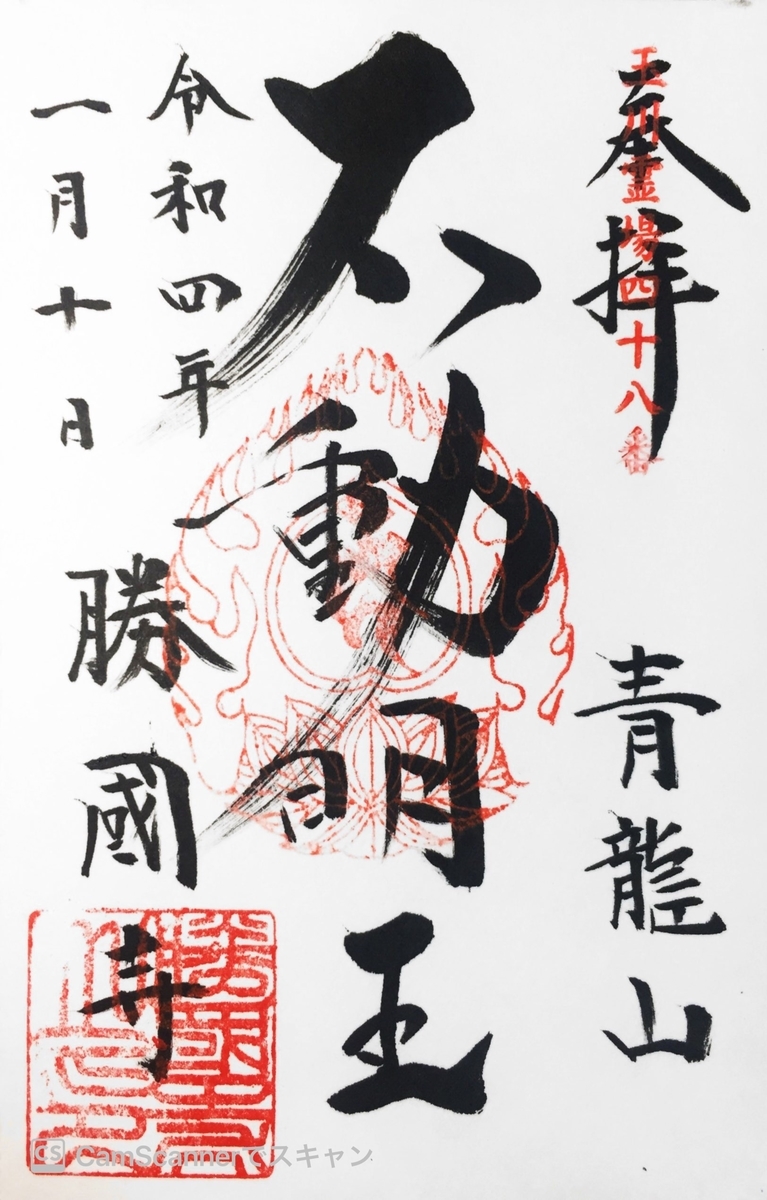 奉拝
玉川霊場四十八番
青龍山
不動明王
令和四年
一月十日
勝國寺
CS CamScannerでスキャン